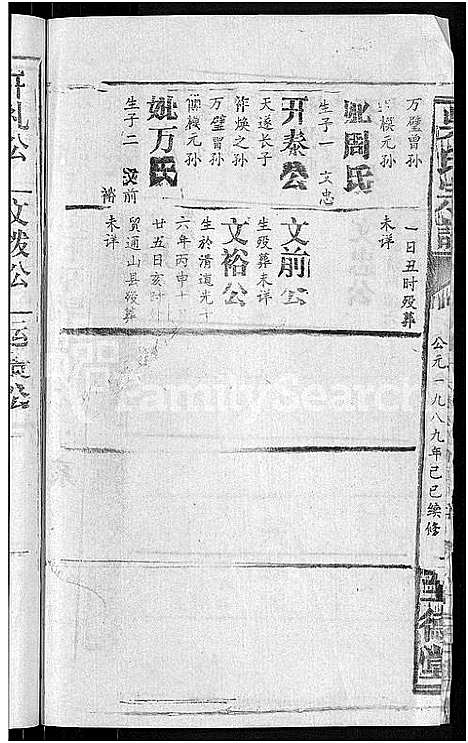 公元一九八九年己巳续修
万璧曾孙
模元孙
妣周氏
生子一 文忠
开泰公
天遂长子
作焕之孙
万璧曾孙
模元孙
妣万氏
生子二 文前
裕
一日丑时殁葬
未详
文前公
生殁葬未详
文裕公
生於清道光十
六年丙申十
廿五日亥时
贸通山县殁葬
未详
开礼公
文拨公
FamilySearch